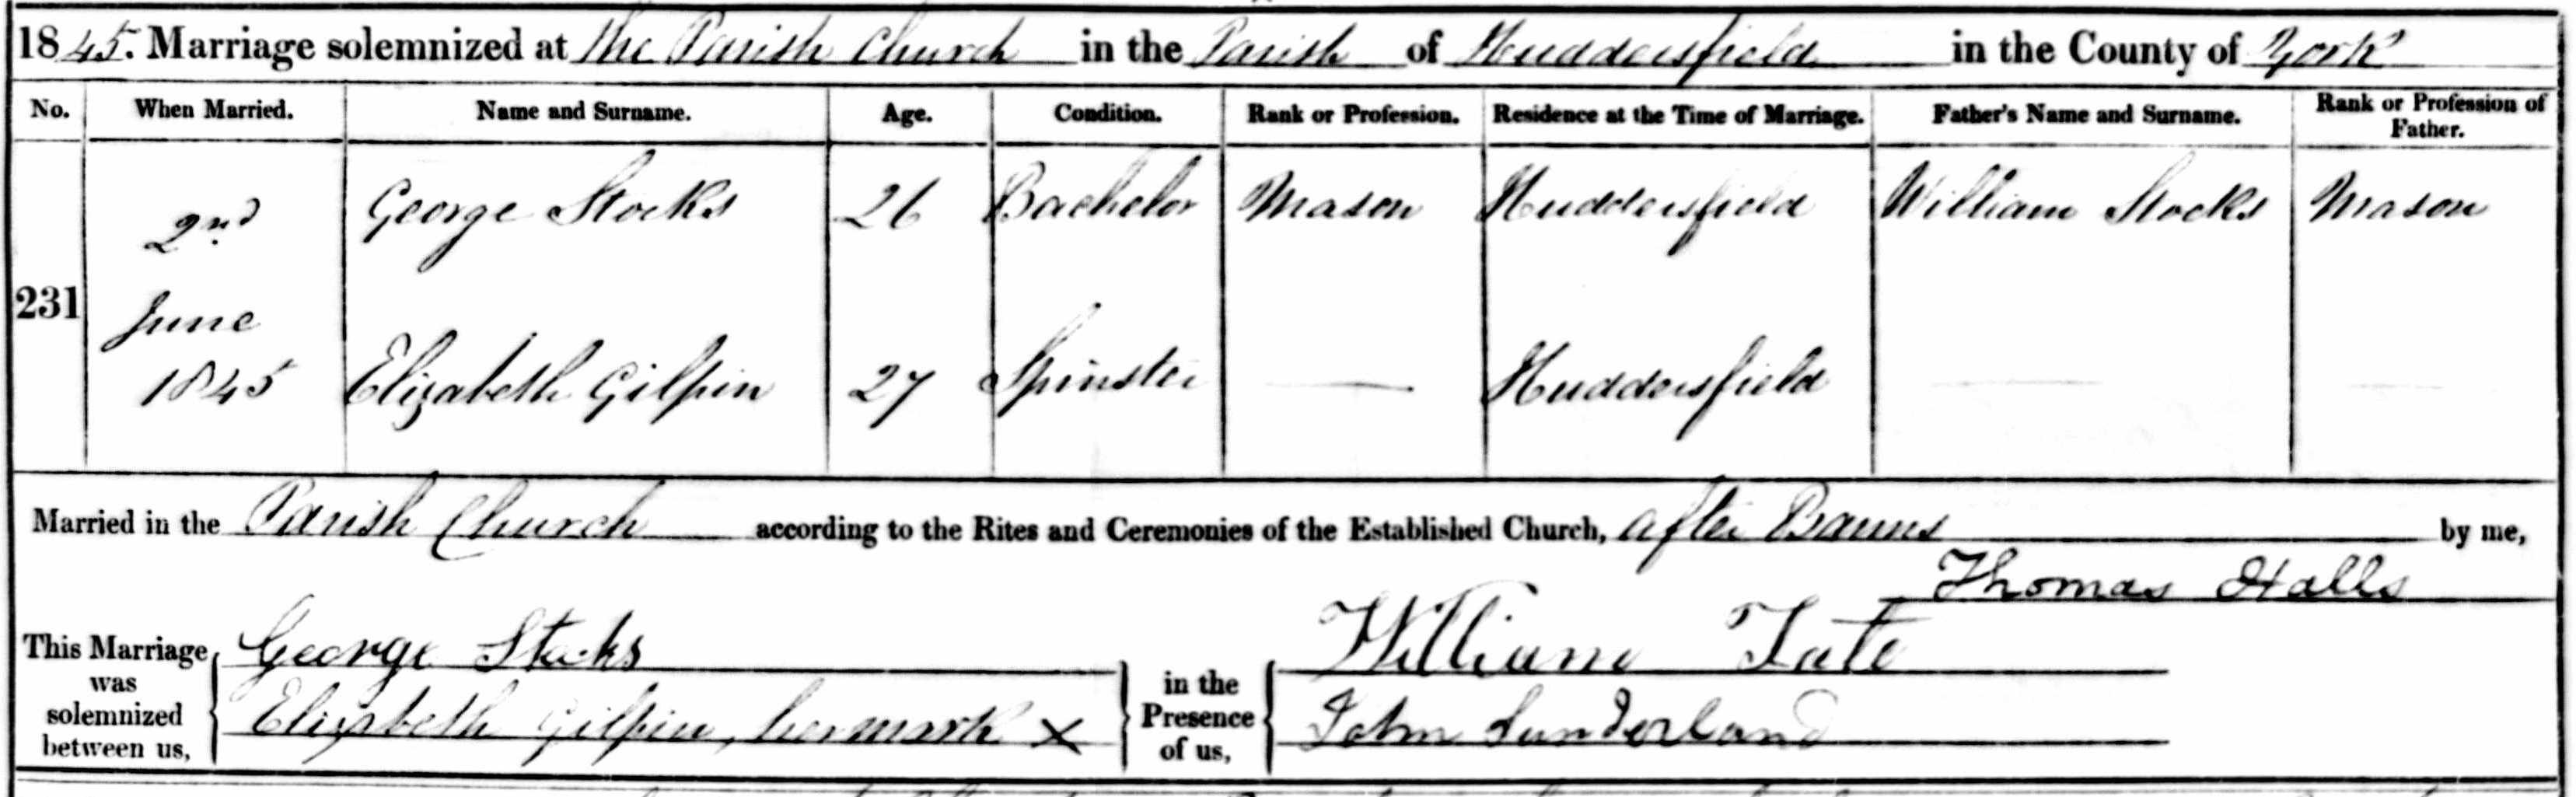 1845. Marriage solemnized at the Parish Church in the Parish of Huddersfield in the County of York
No. When Married. Name and Surname. Age. Condition. Rank or Profession. Residence at the Time of Marriage. Father's Name and Surname. Rank or Profession of Father.
2nd George Stocks 26 Bachelor Mason Huddersfield William Stocks Mason
231 June
1845 Elizabeth Gilpin 27 Spinster — Huddersfield — —
Married in the Parish Church according to the Rites and Ceremonies of the Established Church, after Banns by me,
Thomas Halls
This Marriage was solemnized between us, George Stocks in the Presence of us, William Tate
Elizabeth Gilpin, her mark X John Sunderland